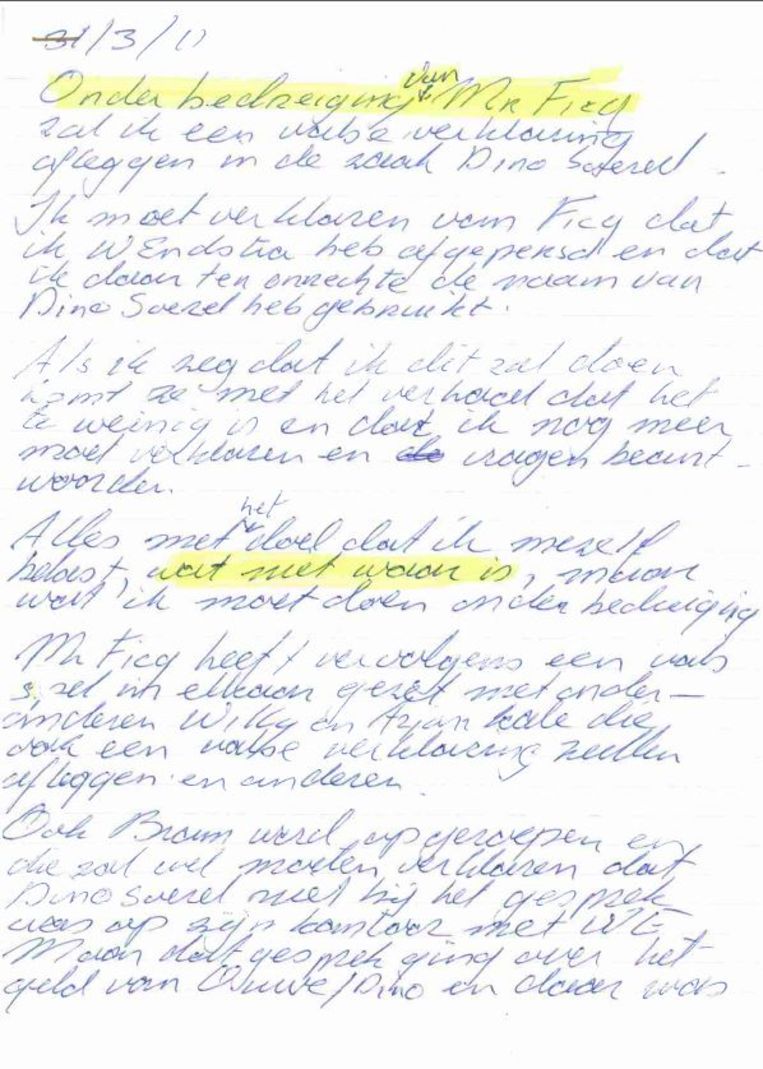 31/3/11
Onder bedreiging van Mr Ficq
zal ik een valse verklaring
afleggen in de zaak Dino Soerel.
Ik moet verklaren van Ficq dat
ik WEndstra heb afgeperst en dat
ik daar ten onrechte de naam van
Dino Soerel heb gebruikt.
Als ik zeg dat ik dit zal doen
komt ze met het verhaal dat het
te weinig is en dat ik nog meer
moet verklaren en de vragen beant-
woorden.
Alles met het doel dat ik mezelf
belast, wat niet waar is, maar
wat ik moet doen onder bedreiging
Mr Ficq heeft vervolgens een vals
spel in elkaar gezet met onder-
anderen Willy en Arjan kale die
ook een valse verklaring zullen
afleggen en anderen.
Ook Bram word opgeroepen en
die zal wel moeten verklaren dat
Dino Soerel niet bij het gesprek
was op zijn kantoor met WE
Maar dat gesprek ging over het
geld van Ouwe/Dino en daar was